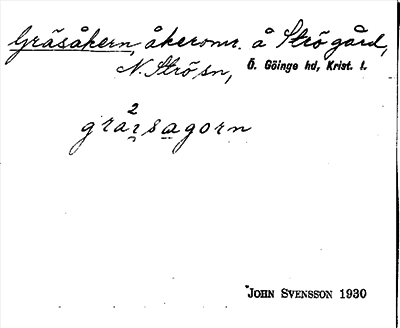 Gräsåkern, åkeromr. å Strö gård,
N. Strö sn, Ö. Göinge hd, Krist. l.
2
graisagorn
JOHN SVENSSON 1930